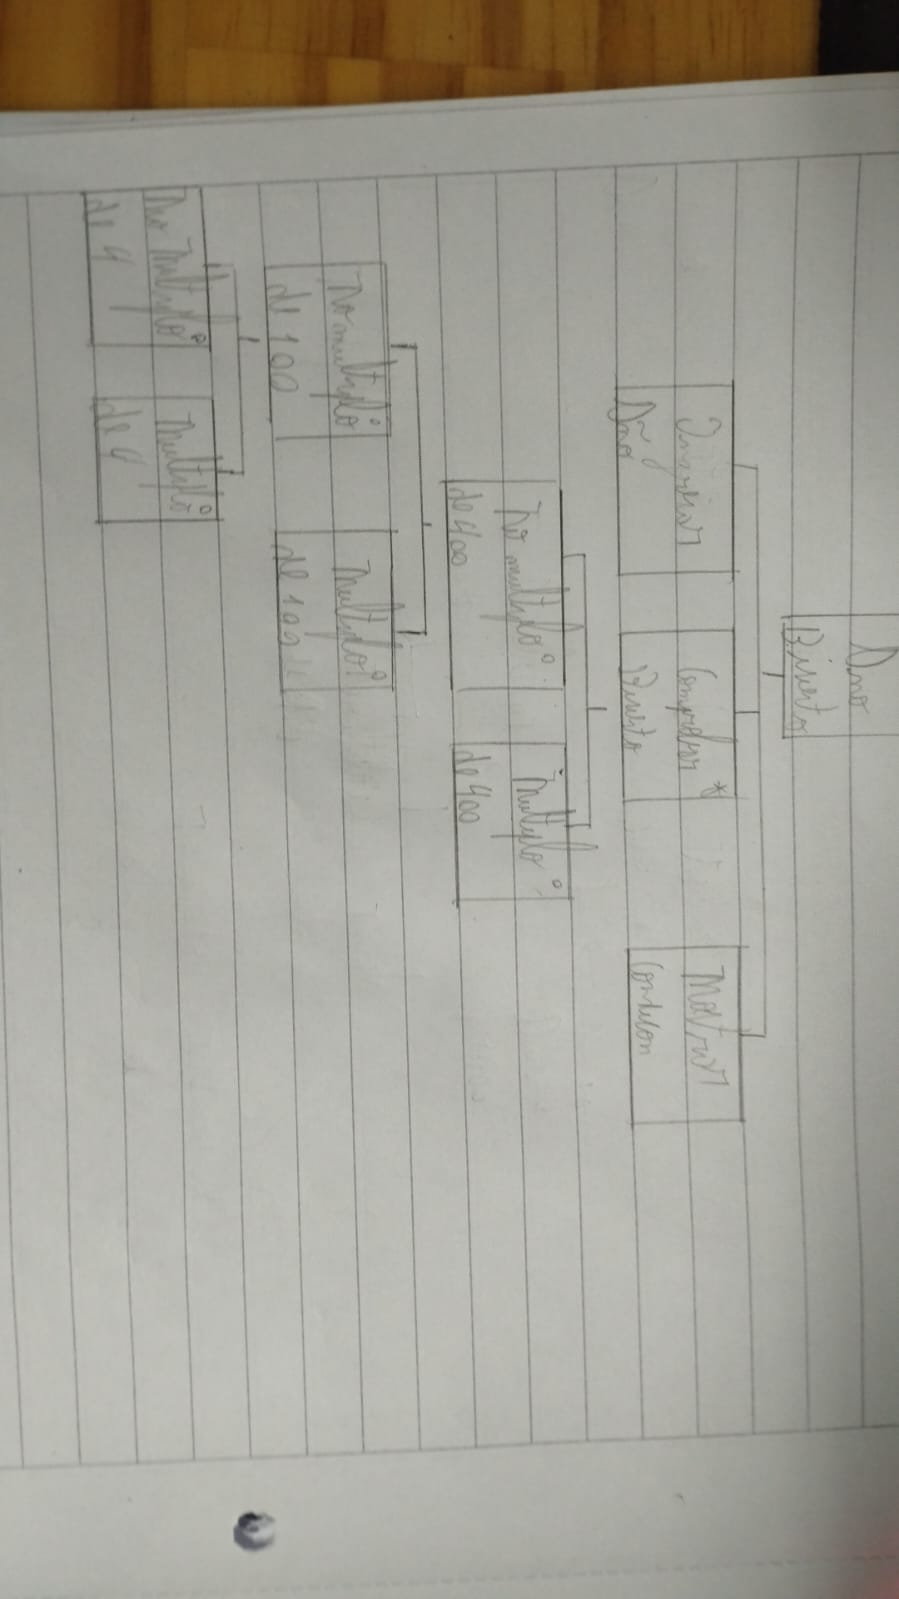 Año
Bisiesto
Ingresar
Año
Comprobar *
Bisiesto
Mostrar
Condicion
No multiplo °
de 400
Multiplo °
de 400
No multiplo °
de 100
Multiplo °
de 100
No Multiplo °
de 4
Multiplo °
de 4